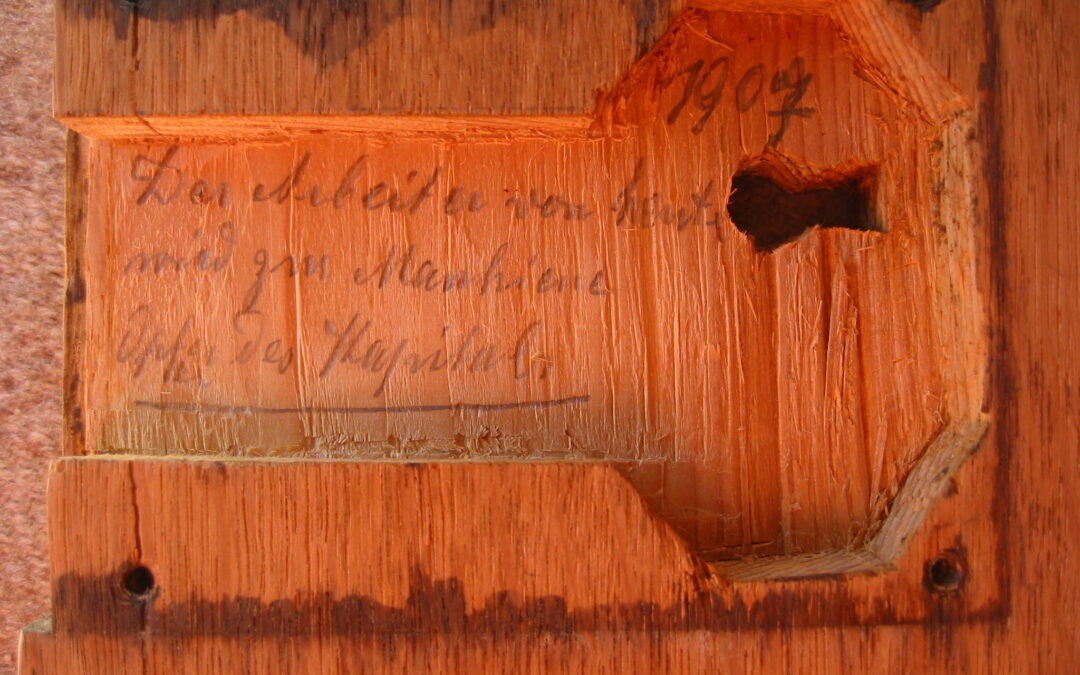 1907
Der Arbeiter von heute
wird zur Maschiene
Opfer des Kapital.